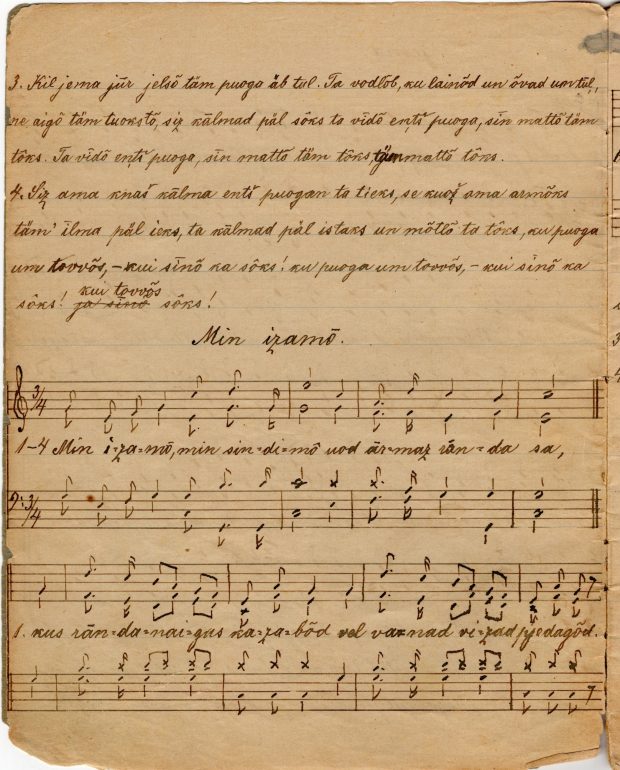 3. Kil jema jūr jelsõ täm puoga äb tul. Ta vodlõb, ku lainõd un õvad um tūl,
ne aigõ täm tuokstõ, siz kälmad päl sõks ta vidõ entš puoga, sin mattõ täm
tõks. Ta vidõ entš puoga, sin mattõ täm tõks täm mattõ tõks.
4. Siz ama knaš kälma entš puogan ta tieks, se kuož ama armõks
täm' īlma päl ieks, ta kälmad päl istaks un mõtlõ ta tõks, ku puoga
um tovvõs, – kui sīnõ ka sõks! ku puoga um tovvõs, – kui sīnõ ka
kui tovvõs
sõks! ja sīnõ sõks!
Min izamō.
3/4
1–4 Min i-za-mō, min sin-di-mō uod är-maz rān-da sa,
3/4
1. kus rān-da-nai-gas ka-za-bõd vel va-nad vi-zad pjedagõd.